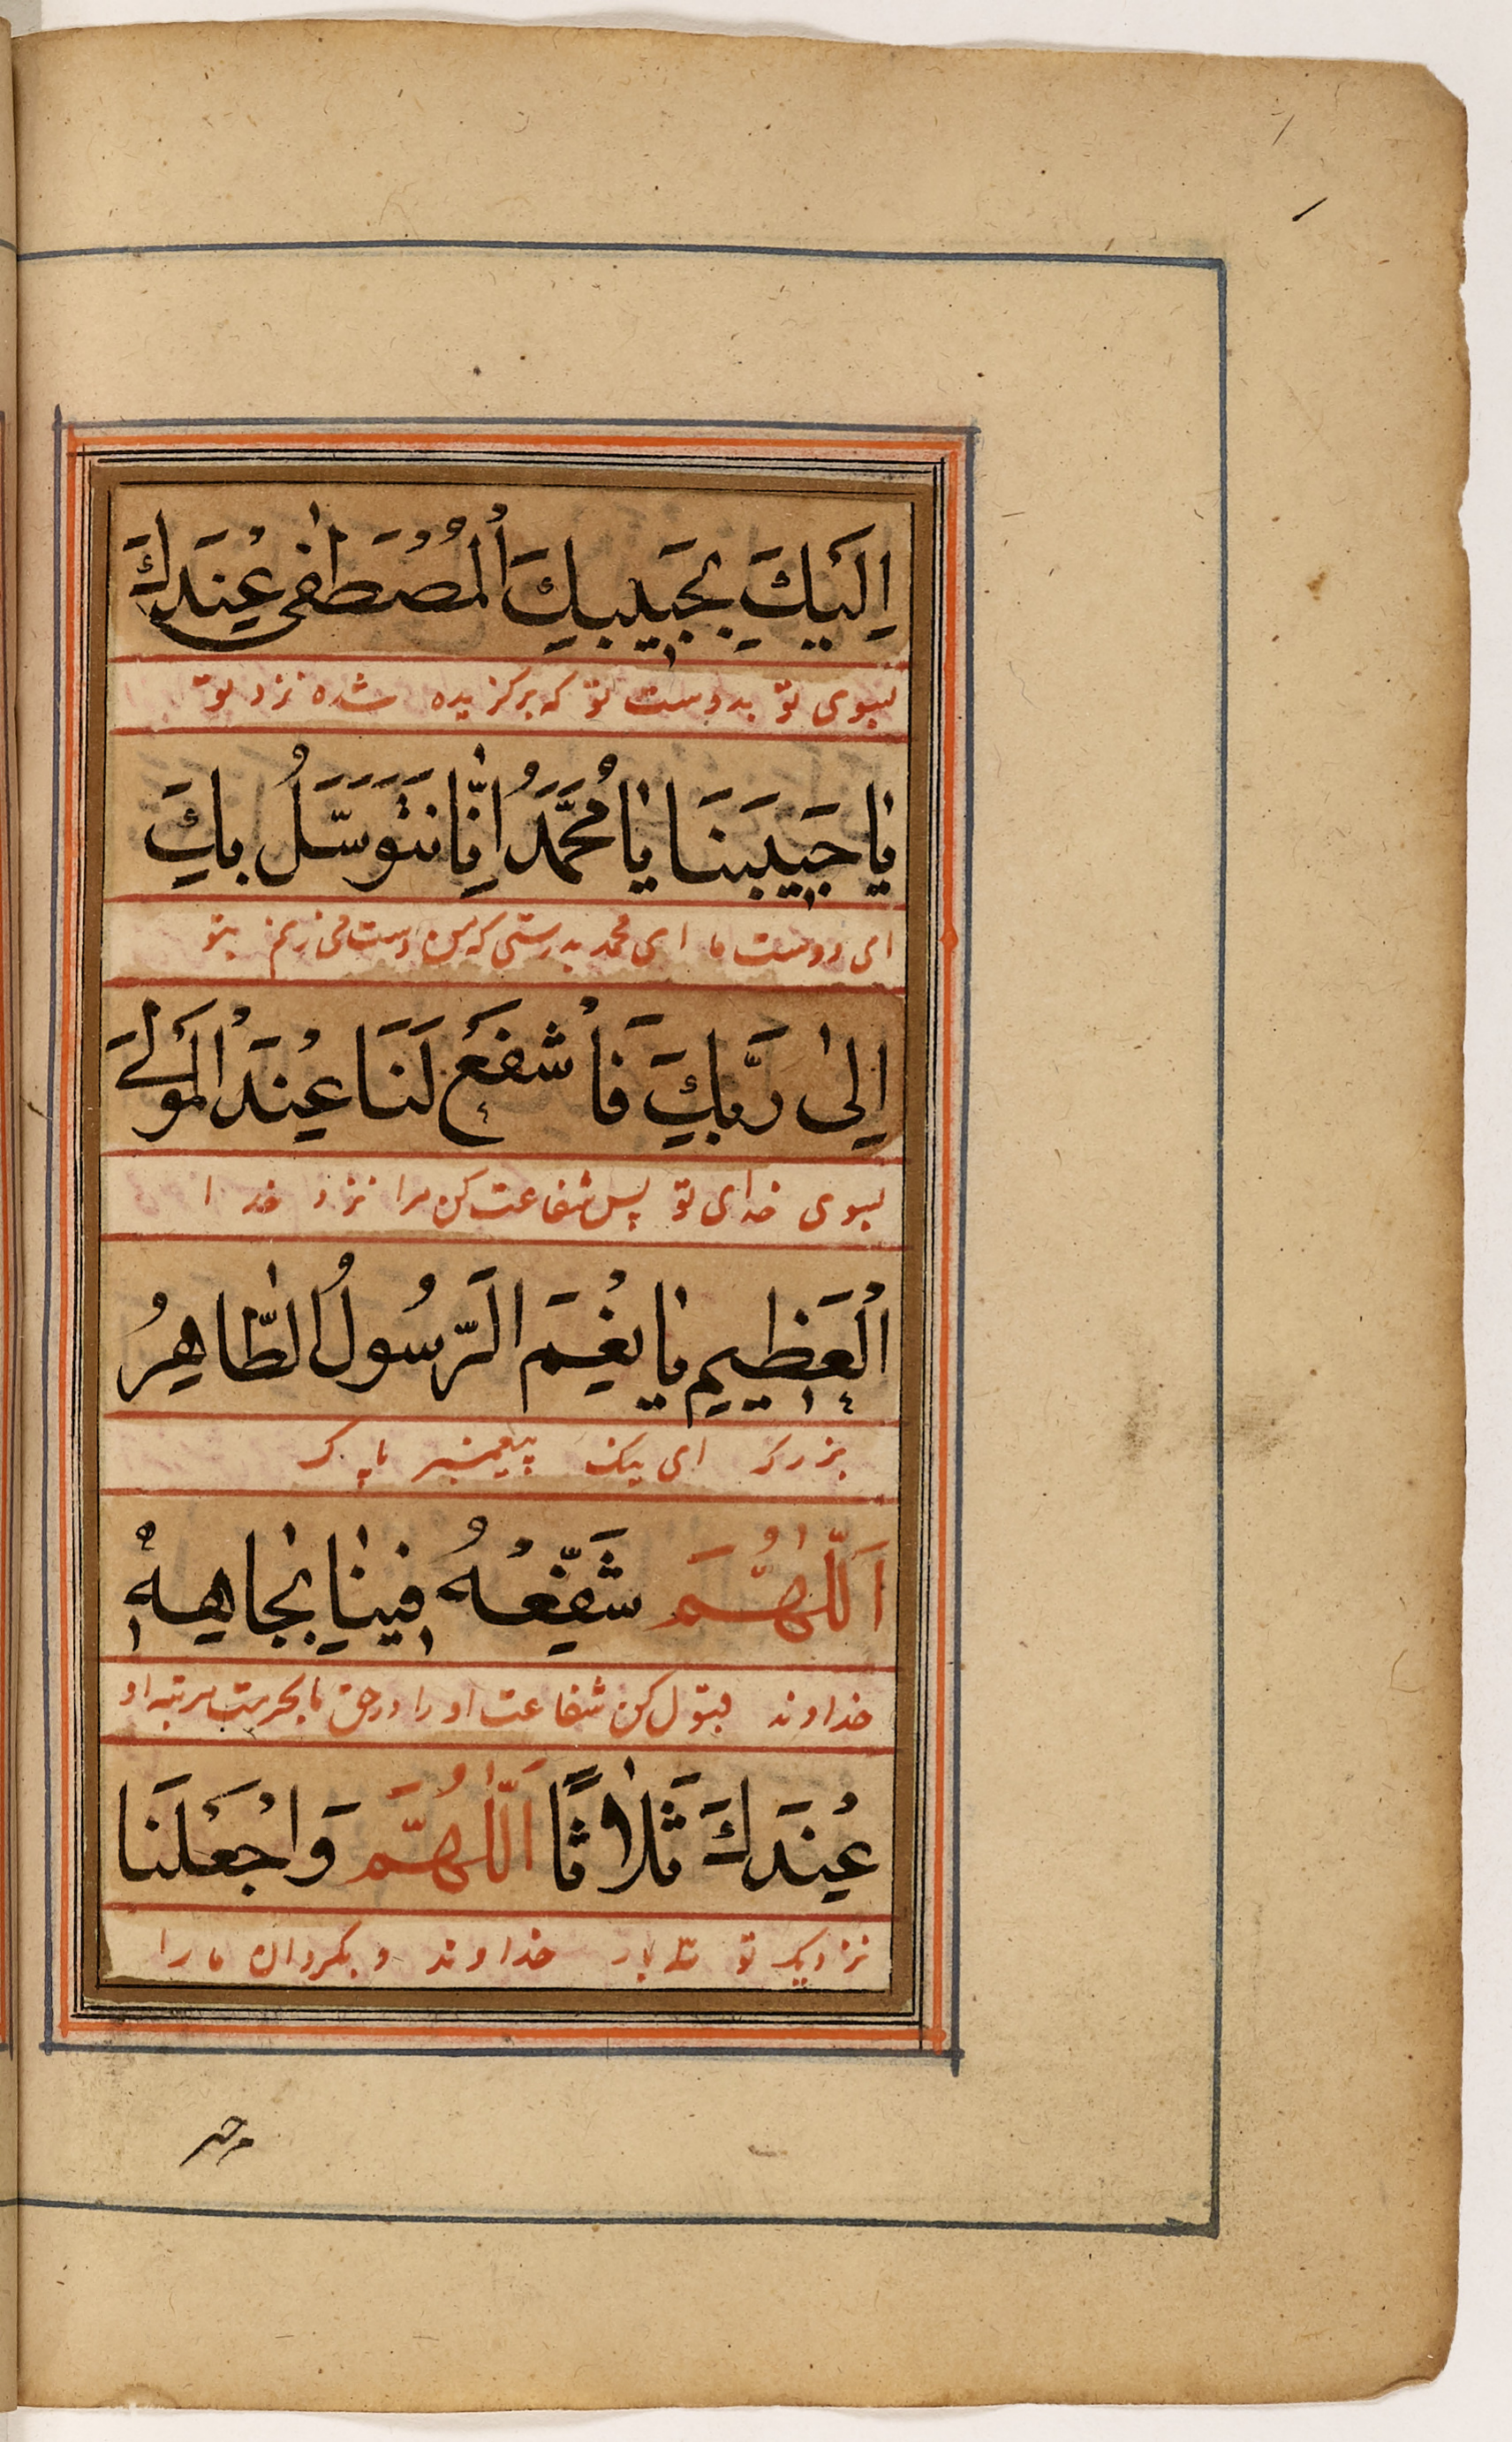 اِلَيْكَ بِحَبِيبِكَ الْمُصْطَفٰى عِنْدَكَ
بسوی تو بدوست تو که برگزیده شده نزد تو
يَا حَبِيبَنَا يَا مُحَمَّدُ اِنَّا نَتَوَسَّلُ بِكَ
ای دوست ما ای محمد بدرستی که من دست می‌زنم بتو
اِلٰى رَبِّكَ فَاشْفَعْ لَنَا عِنْدَ الْمَوْلَى
بسوی خدای تو پس شفاعت کن مرا نزد خدا
الْعَظِيمِ يَا نِعْمَ الرَّسُولُ الطَّاهِرُ
بزرک ای نیک پیغمبر پاک
اَللّٰهُمَّ شَفِّعْهُ فِينَا بِجَاهِهٖ
خداوند قبول کن شفاعت او را در حق ما بحرمت مرتبه او
عِنْدَكَ ثَلَاثًا اَللّٰهُمَّ وَاجْعَلْنَا
نزدیک تو سه بار خداوند و بگردان ما را